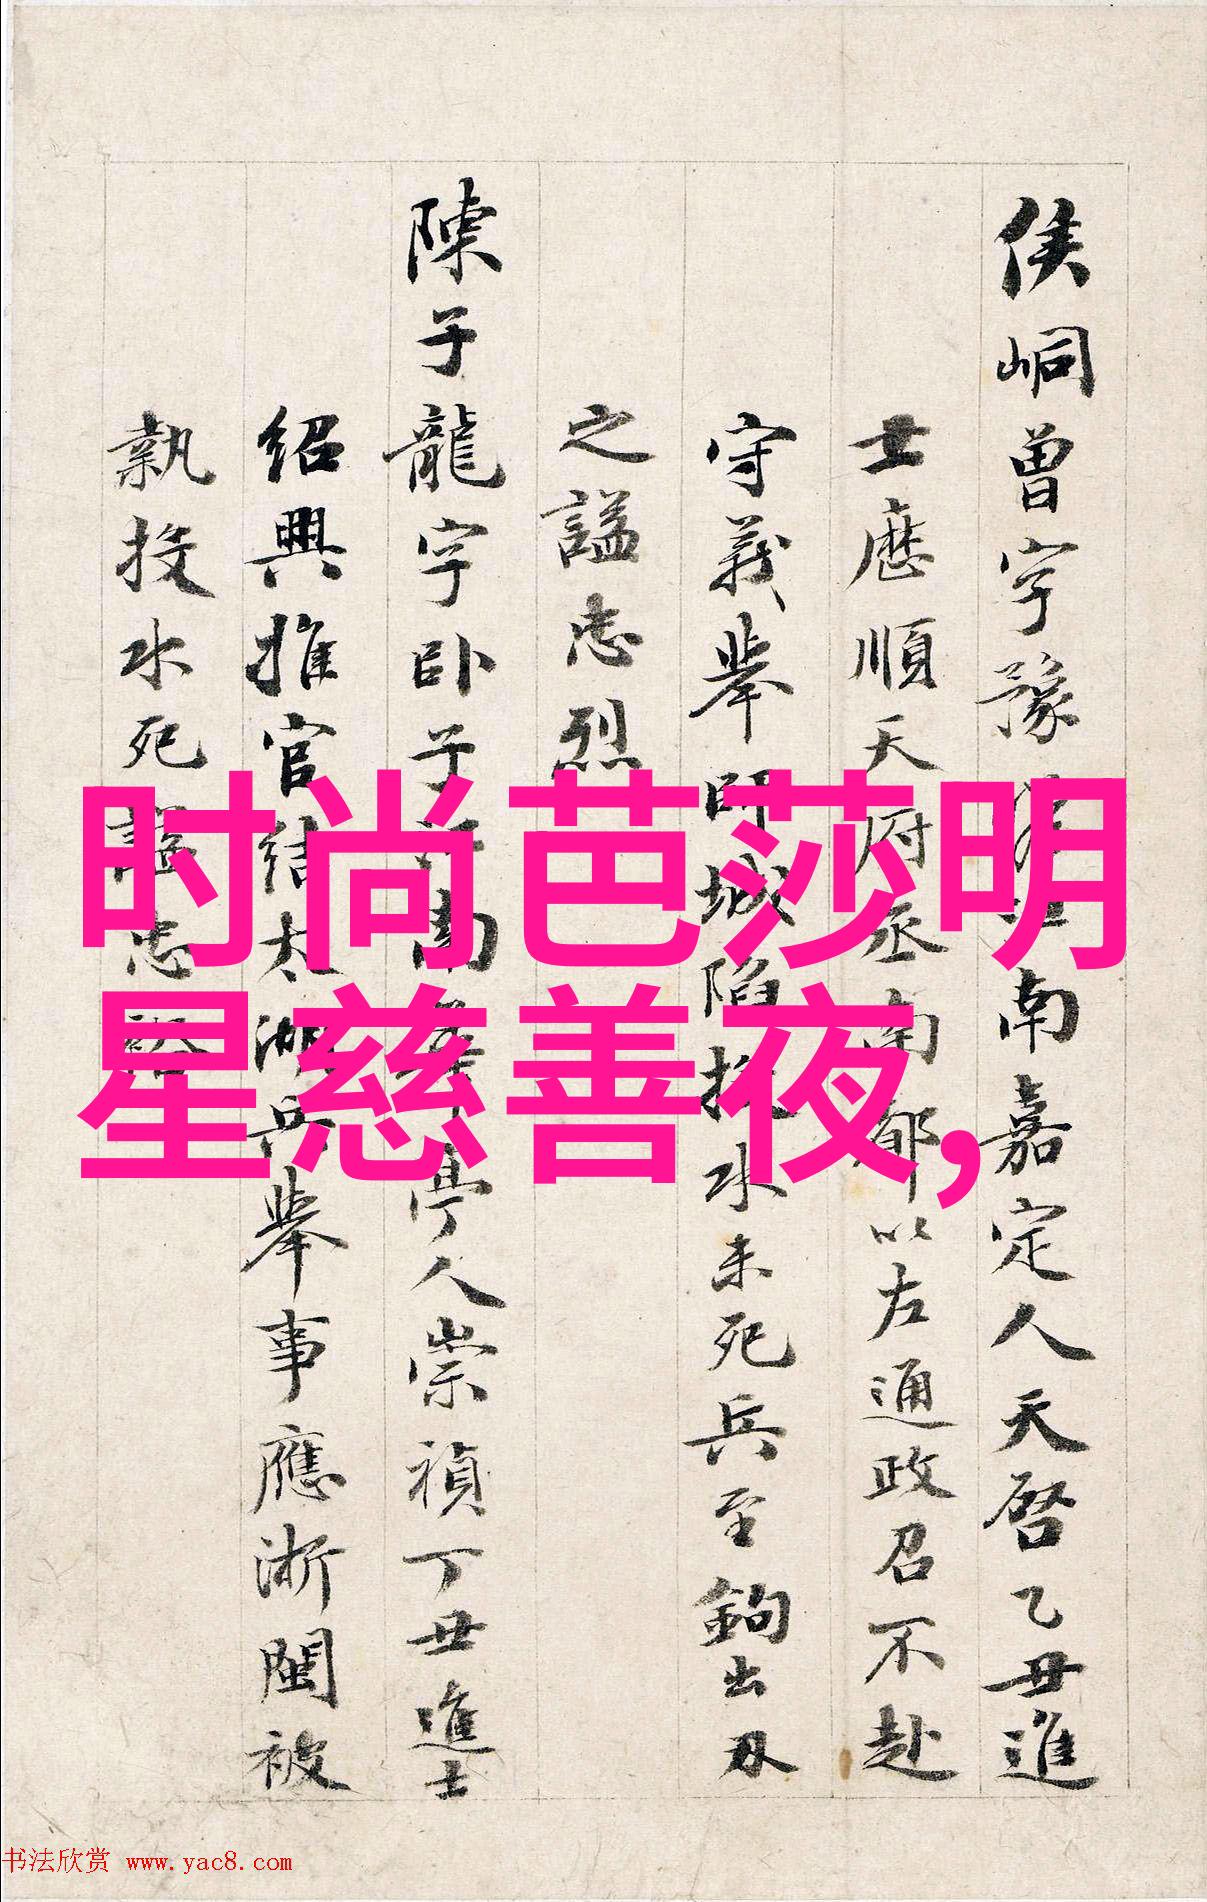 侯峒曾字豫瞻江南嘉定人天啓乙丑進
士歷順天府丞南都以左通政召不赴
守義舉師城陷投水未死兵至鉤出刃
之謚忠烈
陳子龍字卧子江南華亭人崇禎丁丑進士
紹興推官結太湖兵舉事應浙閩被
執投水死謚忠裕
时尚芭莎明
星慈善夜,
书法欣赏 www.yac8.com